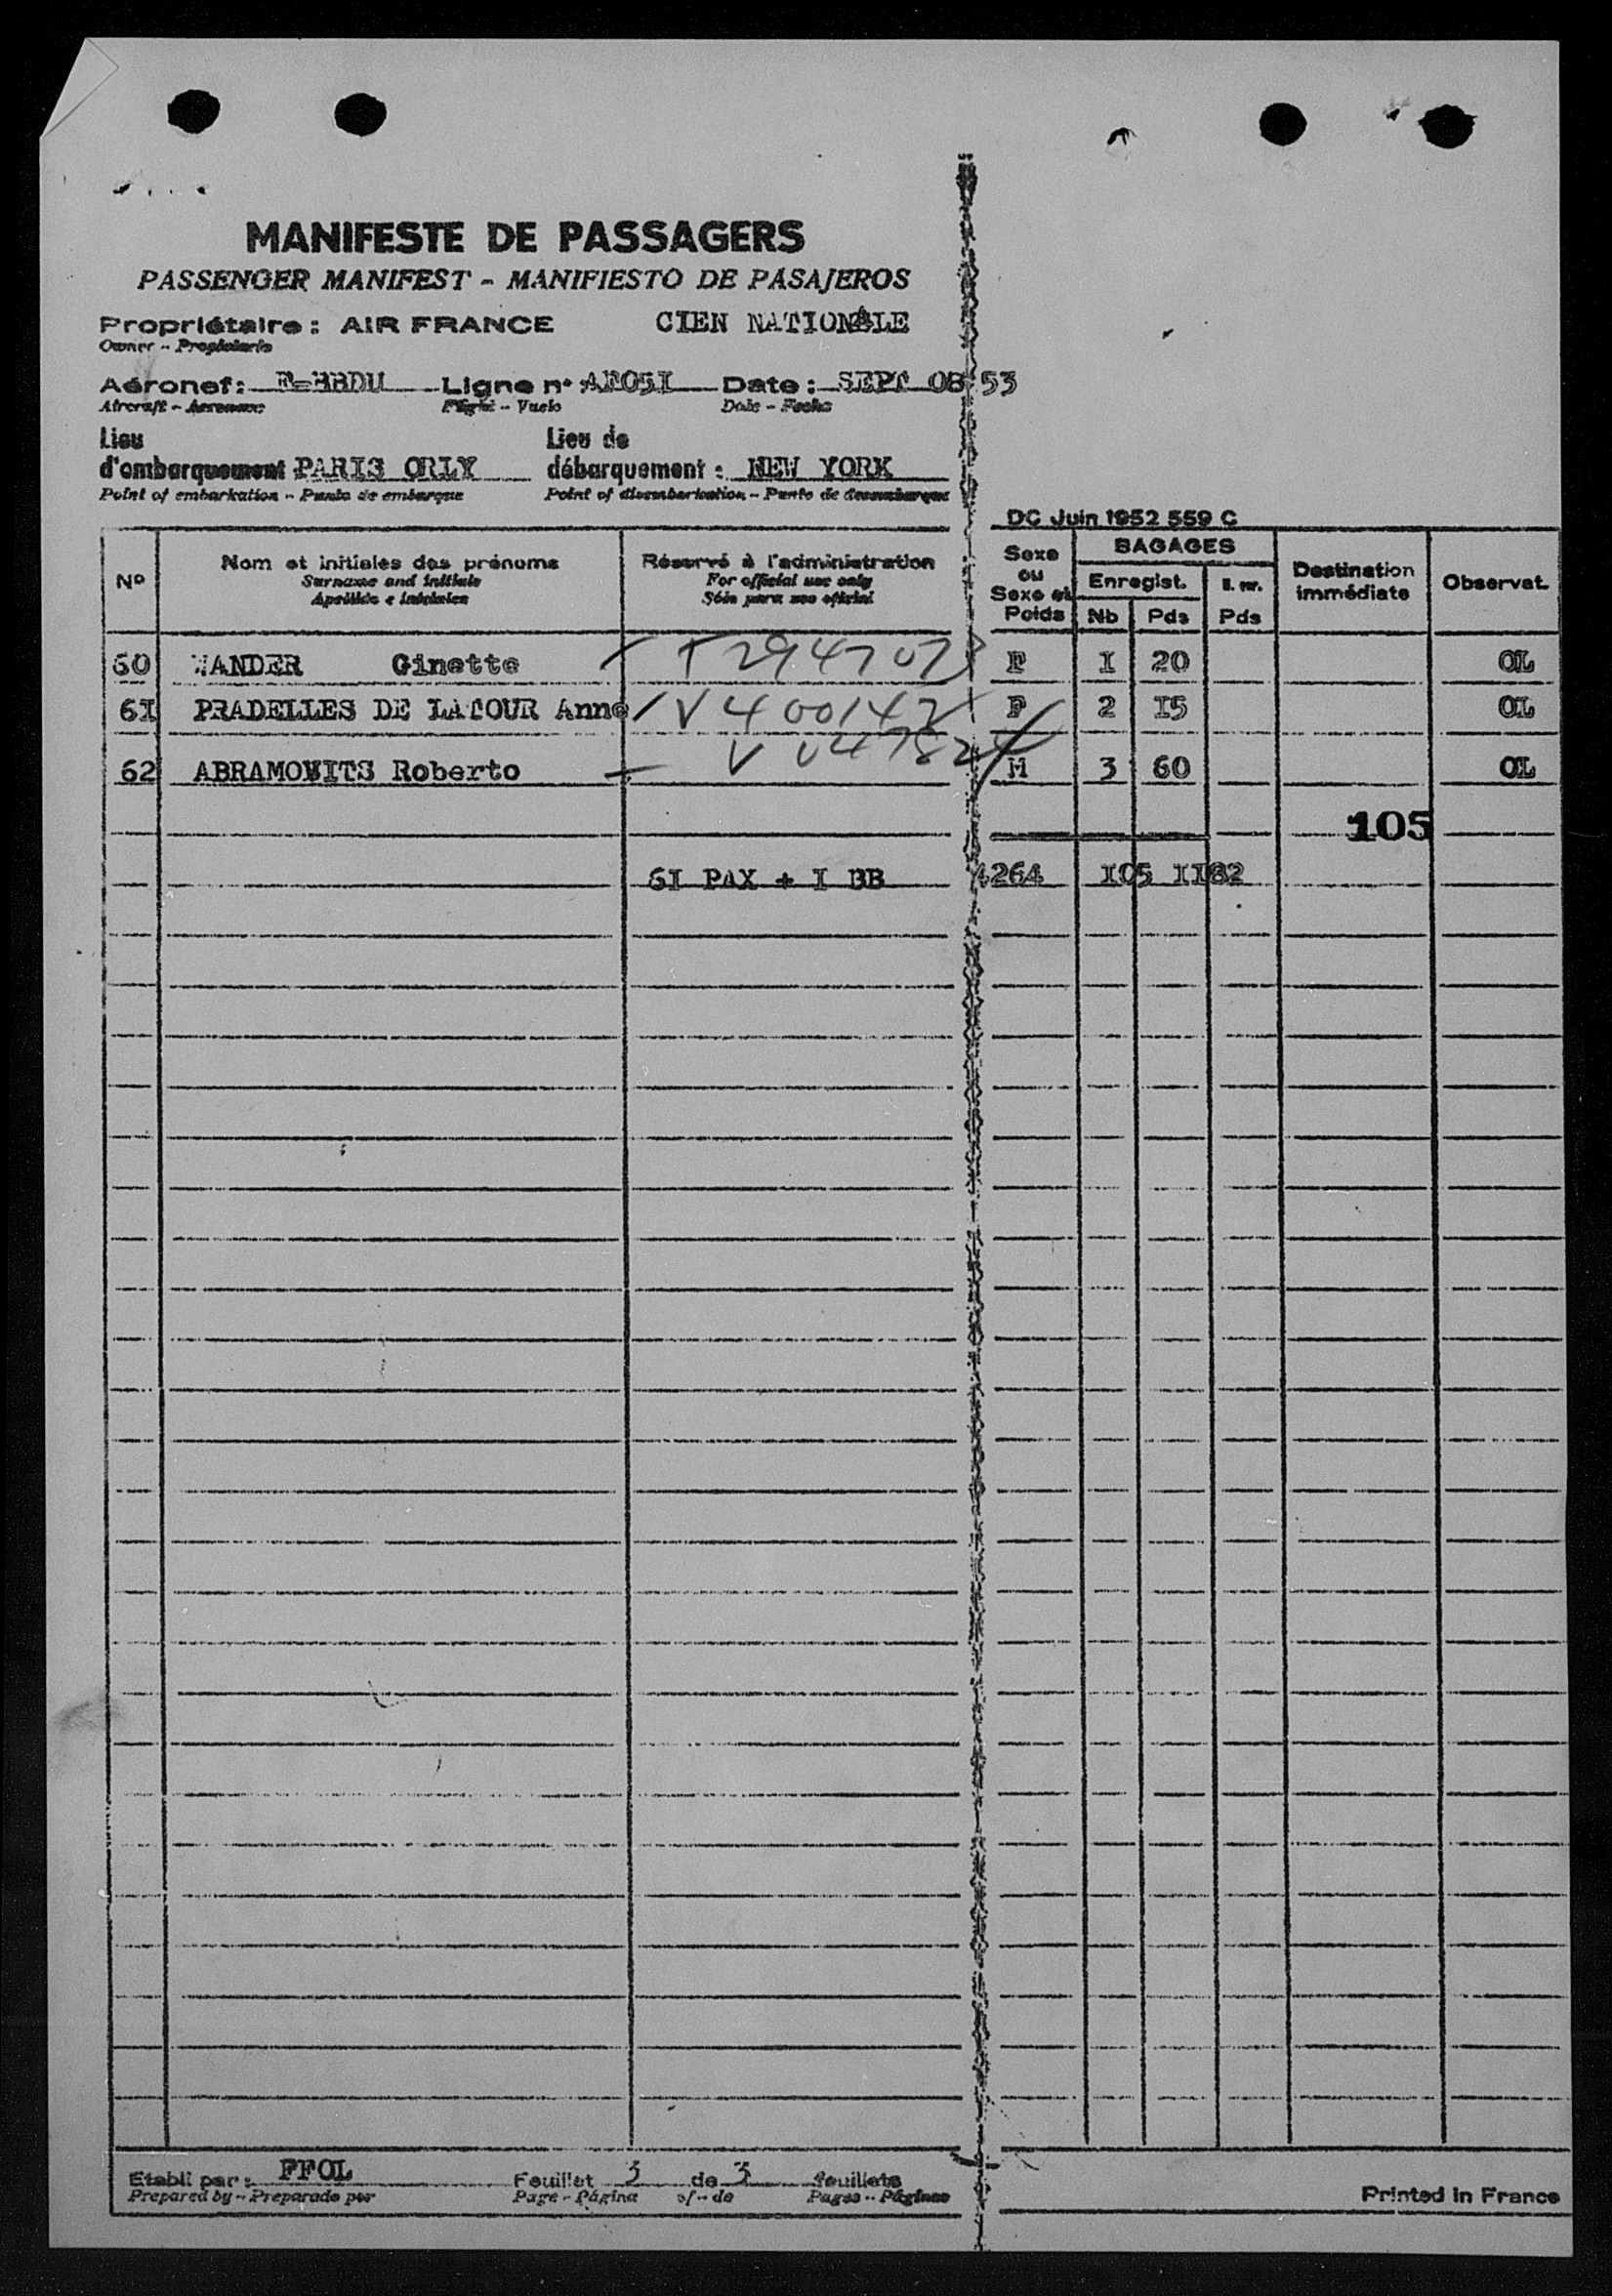 MANIFESTE DE PASSAGERS
PASSENGER MANIFEST - MANIFIESTO DE PASAJEROS
Propriétaire : AIR FRANCE CIEN NATIONALE
Owner - Propietario
Aéronef : F-BBDU Ligne n° AF05I Date : SEPT 08 53
Aircraft - Aeronave Flight - Vuelo Date - Fecha
Lieu Lieu de
d'embarquement PARIS ORLY débarquement : NEW YORK
Point of embarkation - Punto de embarque Point of disembarkation - Punto de desembarque
DC Juin 1952 559 C
N° Nom et initiales des prénoms Réservé à l'administration Sexe ou Sexe et Poids BAGAGES Destination immédiate Observat.
Surname and initials For official use only Enregist.
Apellido e iniciales Sólo para uso oficial Nb Pds Pds
60 WANDER Ginette F I 20 OL
6I PRADELLES DE LATOUR Anne V400142 F 2 I5 OL
62 ABRAMOWITS Roberto M 3 60 OL
105
6I PAX + I BB 4264 I05 II82
Etabli par : FFOL Feuillet 3 de 3 feuillets
Prepared by - Preparado por Page - Página of - de Pages - Páginas
Printed in France